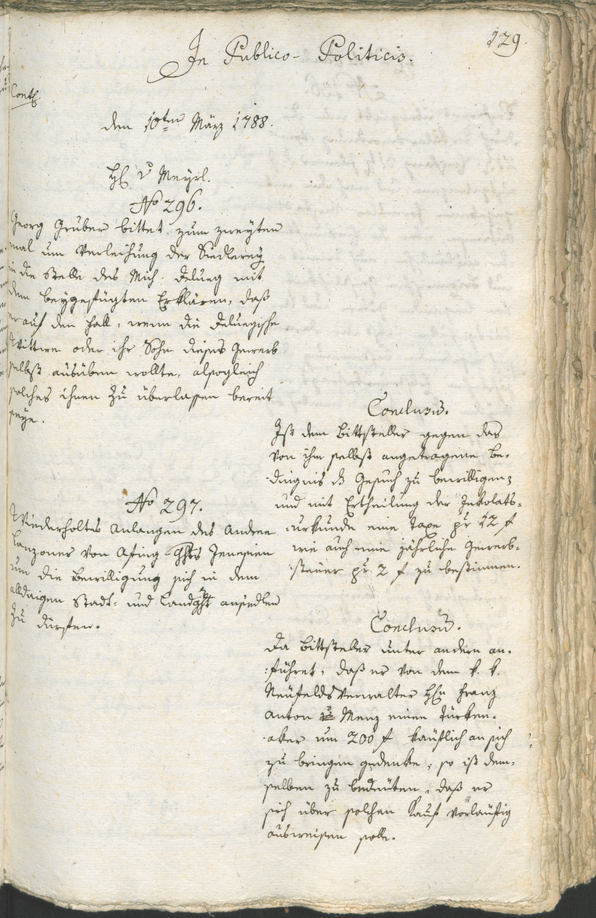 129.
In Publico-Politicis.
Cont
den 10ten März 1788.
H v Meyrl.
No 296.
Georg Gruber bittet zum zweyten
mal um Verleihung der Siederey
in die Stelle des Mich. mit
dem beygefügten Erklären, daß
er auf den Fall, wenn die
Wittwe oder ihr Sohn dieses Gewerb
selbst ausüben wollte, alsogleich
solches ihnen zu überlassen bereit
seye.
Conclusum.
Ist dem Bittsteller gegen das
von ihm selbst angetragene Be-
dingnis d Gesuch zu bewilligen,
und mit Ertheilung der Inkolats-
urkunde eine Taxe pr 12 f
wie auch eine jährliche Gewerb-
steuer pr 2 f zu bestimmen.
No 297.
Wiederholtes Anlangen des Andree
Lanzoner von Afing Ghts Jenesien
um die Bewilligung sich in dem
alldaigen Stadt- und Landght ansiedlen
zu dürfen.
Conclusum.
Da Bittsteller unter andern an-
führet, daß er von dem k. k.
Neufeldsverwalter Hn Franz
Anton v Menz einen Türken-
aker um 200 f käuflich an sich
zu bringen gedenke, so ist dem-
selben zu bedeuten, daß er
sich über solchen Kauf vorläufig
ausweisen solle.